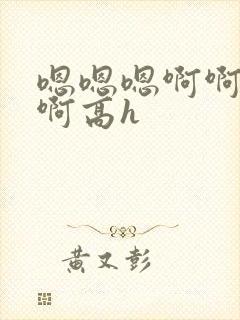 嗯嗯嗯啊啊
啊高h
黄又彭